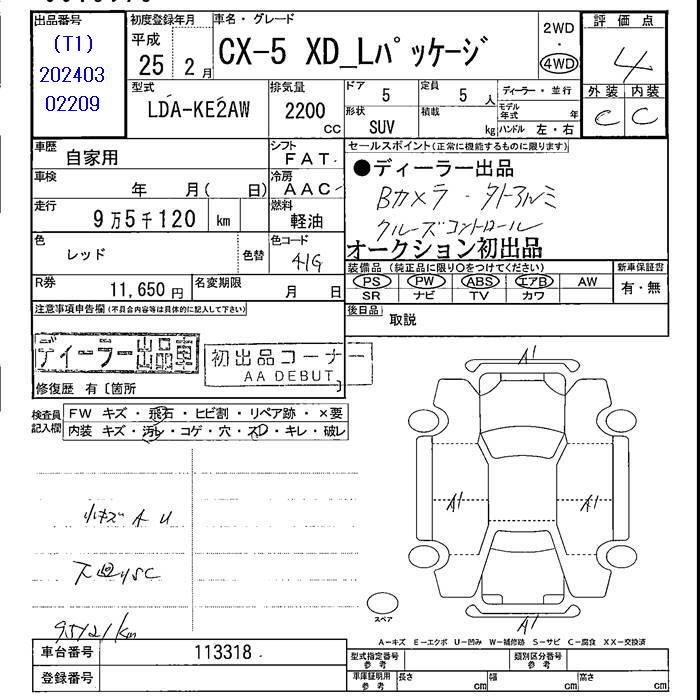 出品番号
(T1)
202403
02209
初度登録年月
平成
25 2月
車名・グレード
CX-5 XD_Lパッケージ
2WD
・
4WD
評価点
4
型式
LDA-KE2AW
排気量
2200
CC
ドア
5
定員
5 人
ディーラー・並行
モデル年式 年
外装 内装
C C
形状
SUV
積載
kg
ハンドル 左・右
車歴
自家用
シフト
FAT
セールスポイント(正常に機能するものに限ります)
●ディーラー出品
Bカメラ・外アルミ
クルーズコントロール
オークション初出品
車検
年 月( 日)
冷房
AAC
走行
9万5千120 km
燃料
軽油
色
レッド
色替
色コード
41G
装備品(純正品に限り○をつけてください)
新車保証書
PS PW ABS エアB AW
SR ナビ TV カワ
有・無
R券
11,650円
名変期限
月 日
後日品
取説
注意事項申告欄(不具合内容等は具体的に記入して下さい)
ディーラー出品車
初出品コーナー
AA DEBUT
修復歴 有〔箇所
検査員
記入欄
FW キズ・飛石・ヒビ割・リペア跡・×要
内装 キズ・汚レ・コゲ・穴・スレ・キレ・破レ
小キズ A U
下廻りSC
95121km
A1
A1
A1
A1
スペア
A-キズ E-エクボ U-凹み W-補修跡 S-サビ C-腐食 XX-交換済
車台番号
113318
登録番号
型式指定番号
参考
類別区分番号
参考
車庫証明用
参考
長さ cm
幅 cm
高さ cm